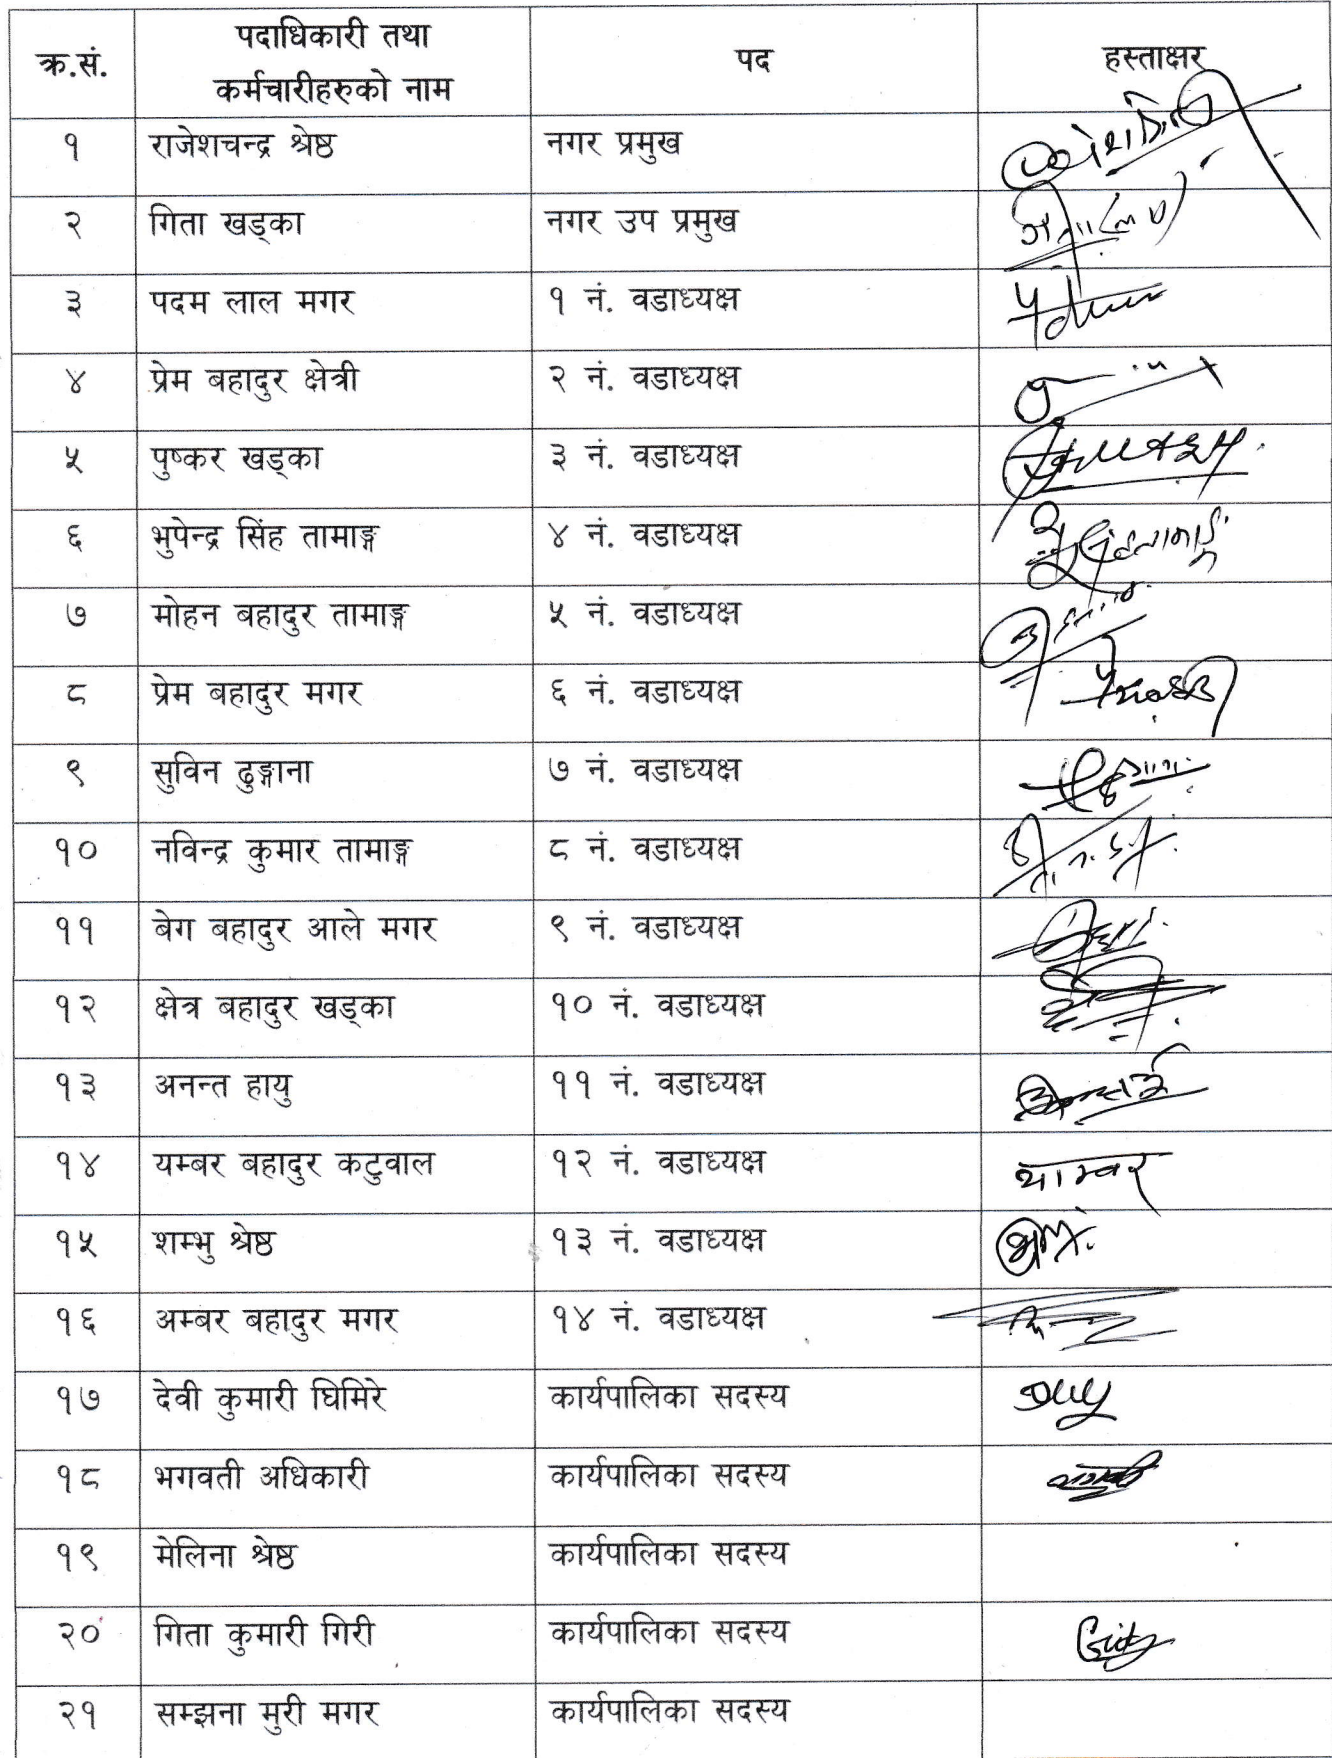 क्र.सं. पदाधिकारी तथा कर्मचारीहरुको नाम पद हस्ताक्षर
१ राजेशचन्द्र श्रेष्ठ नगर प्रमुख
२ गिता खड्का नगर उप प्रमुख
३ पदम लाल मगर १ नं. वडाध्यक्ष
४ प्रेम बहादुर क्षेत्री २ नं. वडाध्यक्ष
५ पुष्कर खड्का ३ नं. वडाध्यक्ष
६ भुपेन्द्र सिंह तामाङ्ग ४ नं. वडाध्यक्ष
७ मोहन बहादुर तामाङ्ग ५ नं. वडाध्यक्ष
८ प्रेम बहादुर मगर ६ नं. वडाध्यक्ष
९ सुविन ढुङ्गाना ७ नं. वडाध्यक्ष
१० नविन्द्र कुमार तामाङ्ग ८ नं. वडाध्यक्ष
११ बेग बहादुर आले मगर ९ नं. वडाध्यक्ष
१२ क्षेत्र बहादुर खड्का १० नं. वडाध्यक्ष
१३ अनन्त हायु ११ नं. वडाध्यक्ष
१४ यम्बर बहादुर कटुवाल १२ नं. वडाध्यक्ष
१५ शम्भु श्रेष्ठ १३ नं. वडाध्यक्ष
१६ अम्बर बहादुर मगर १४ नं. वडाध्यक्ष
१७ देवी कुमारी घिमिरे कार्यपालिका सदस्य
१८ भगवती अधिकारी कार्यपालिका सदस्य
१९ मेलिना श्रेष्ठ कार्यपालिका सदस्य
२० गिता कुमारी गिरी कार्यपालिका सदस्य
२१ सम्झना मुरी मगर कार्यपालिका सदस्य